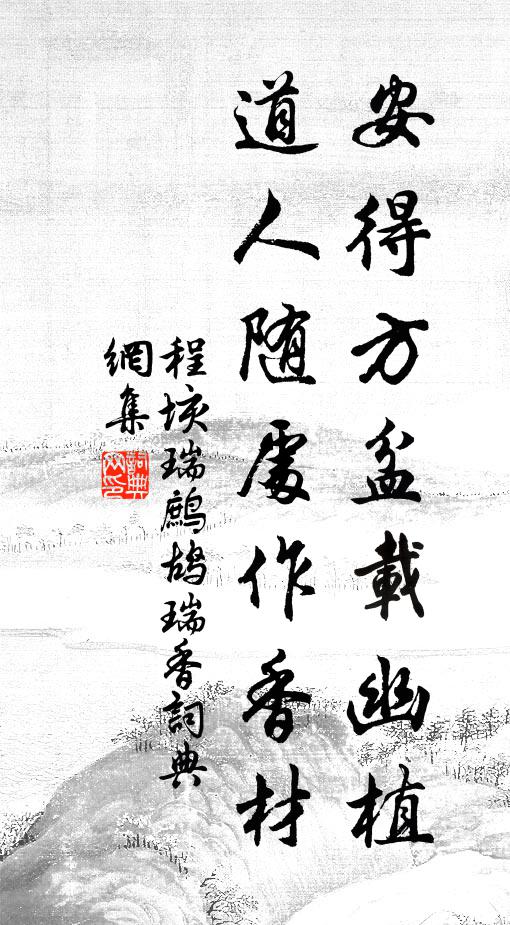 安得方盆載幽植
道人随處作香材
程垓瑞鷓鴣瑞香詞典
網集
詞典網印